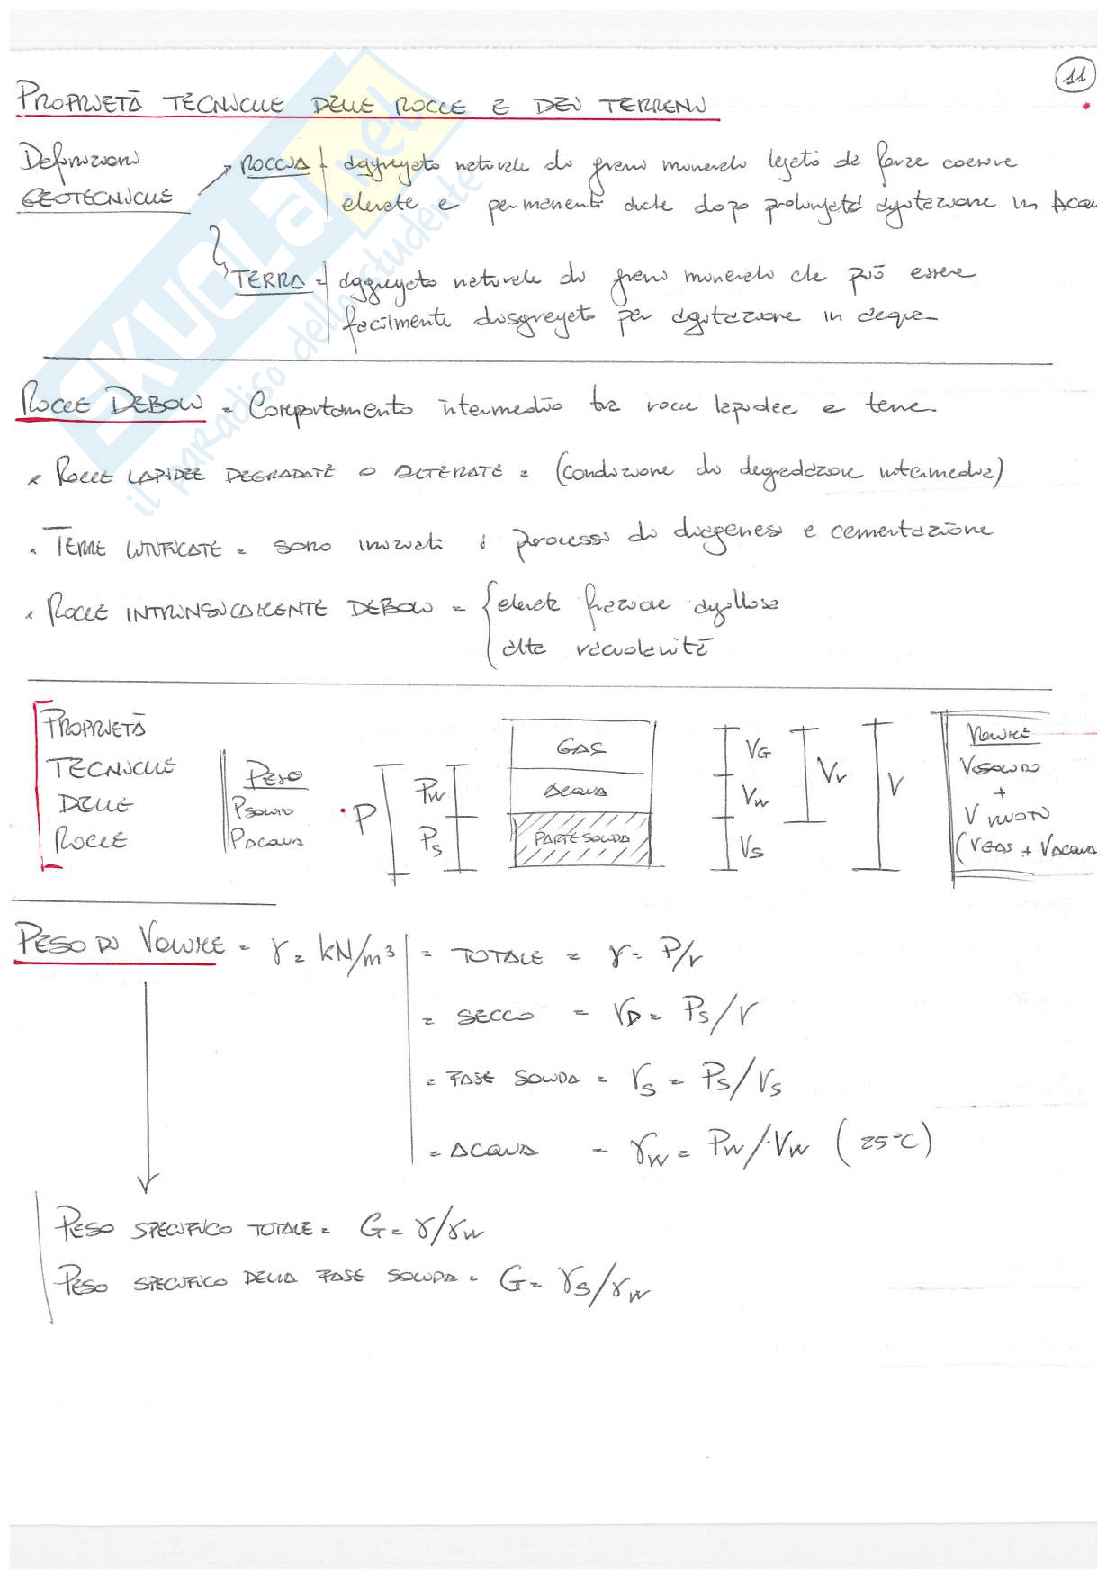 11
PROPRIETÀ TECNICHE DELLE ROCCE E DEI TERRENI
Definizioni
GEOTECNICHE
ROCCIA = aggregato naturale di grani minerali legati da forze coesive
elevate e permanenti anche dopo prolungata agitazione in acqu
TERRA = aggregato naturale di grani minerali che può essere
facilmente disgregato per agitazione in acqua
ROCCE DEBOLI = Comportamento intermedio tra rocce lapidee e terre
× ROCCE LAPIDEE DEGRADATE O ALTERATE = (condizione di degradazione intermedia)
• TERRE LITIFICATE = sono iniziati i processi di diagenesi e cementazione
× ROCCE INTRINSICAMENTE DEBOLI = { elevata frazione argillosa
alta vacuolarità
PROPRIETÀ
TECNICHE
DELLE
ROCCE
PESO
PSOLIDO
PACQUA
• P
PW
PS
GAS
ACQUA
PARTE SOLIDA
VG
VW
VS
VV
V
VOLUME
VSOLIDO
+
V VUOTI
(VGAS + VACQUA
PESO DI VOLUME = γ = kN/m³ = TOTALE = γ = P/V
= SECCO = γD = PS/V
= FASE SOLIDA = γS = PS/VS
= ACQUA = γW = PW/VW (25°C)
PESO SPECIFICO TOTALE = G = γ/γW
PESO SPECIFICO DELLA FASE SOLIDA = G = γS/γW
SKUOLA.net
il paradiso dello studente